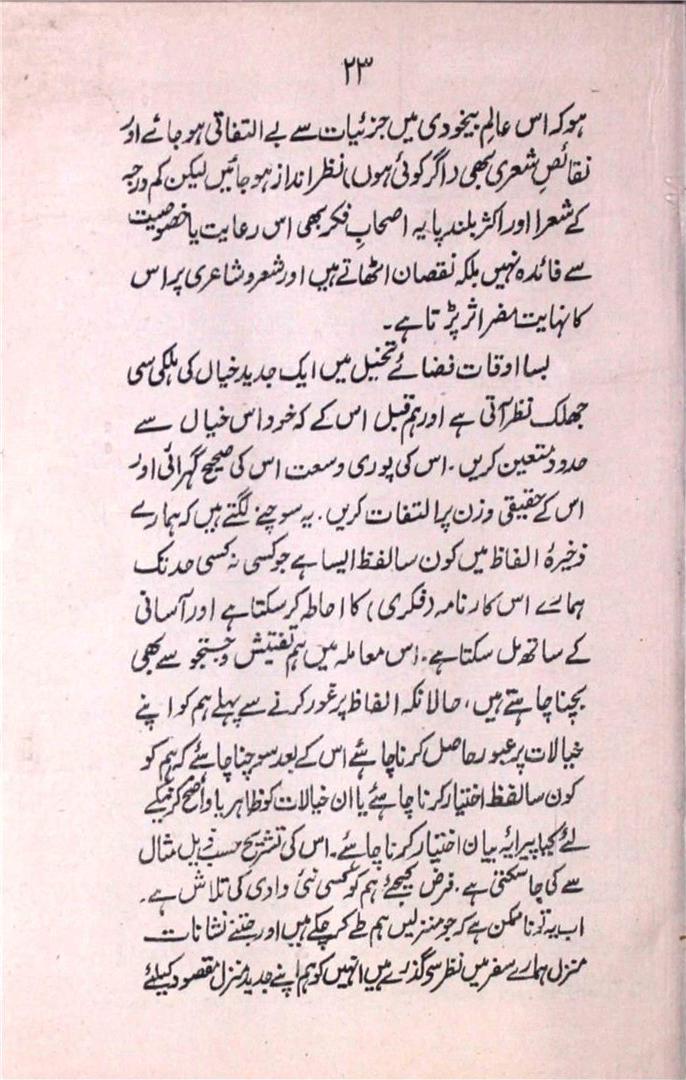 ۲۳
ہو کہ اس عالمِ بیخودی میں جزئیات سے بے التفاتی ہو جائے اور
نقائصِ شعری بھی (اگر کوئی ہوں) نظر انداز ہو جائیں لیکن کم درجہ
کے شعرا اور اکثر بلند پایہ اصحابِ فکر بھی اس رعایت یا خصوصیت
سے فائدہ نہیں بلکہ نقصان اٹھاتے ہیں اور شعر و شاعری پر اس
کا نہایت مضر اثر پڑتا ہے۔
بسا اوقات فضائے تخیل میں ایک جدید خیال کی ہلکی سی
جھلک نظر آتی ہے اور ہم قبل اس کے کہ خود اس خیال سے
حدود متعین کریں۔ اس کی پوری وسعت اس کی صحیح گہرائی اور
اس کے حقیقی وزن پر التفات کریں۔ یہ سوچنے لگتے ہیں کہ ہمارے
ذخیرۂ الفاظ میں کون سا لفظ ایسا ہے جو کسی نہ کسی حد تک
ہمارے اس کارنامہ (فکری) کا احاطہ کر سکتا ہے اور آسانی
کے ساتھ مل سکتا ہے۔ اس معاملہ میں ہم تفتیش و جستجو سے بھی
بچنا چاہتے ہیں، حالانکہ الفاظ پر غور کرنے سے پہلے ہم کو اپنے
خیالات پر عبور حاصل کرنا چاہئے اس کے بعد سوچنا چاہئے کہ ہم کو
کون سا لفظ اختیار کرنا چاہئے یا ان خیالات کو ظاہر یا واضح کرنیکے
لئے کیا پیرایہ بیان اختیار کرنا چاہئے۔ اس کی تشریح حسب ذیل مثال
سے کی جا سکتی ہے۔ فرض کیجئے ہم کو کسی نئی وادی کی تلاش ہے۔
اب یہ تو ناممکن ہے کہ جو منزلیں ہم طے کر چکے ہیں اور جتنے نشانات
منزل ہمارے سفر میں نظر سے گذرے ہیں انہیں کو ہم اپنے جدید منزل مقصود کیلئے